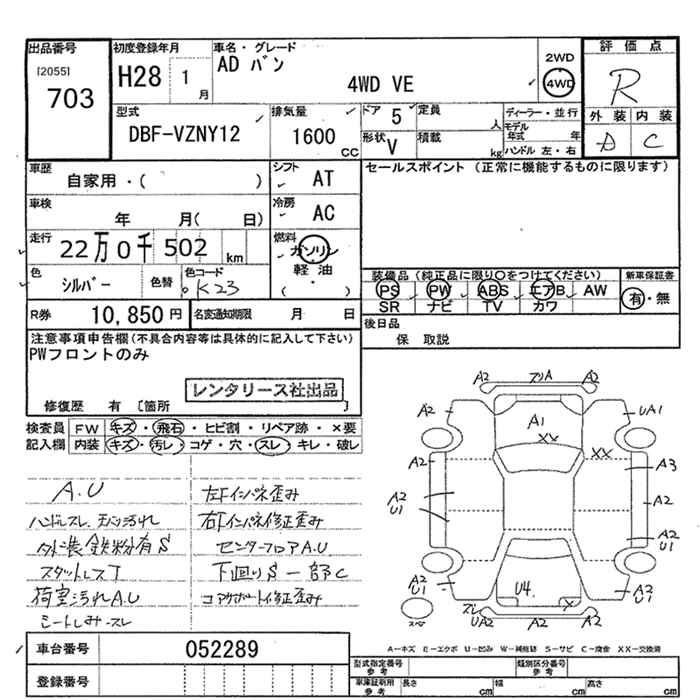 出品番号 初度登録年月 車名・グレード 評価点
[2055] 703 H28 1月 AD バン 4WD VE 2WD 4WD R
型式 排気量 ドア 5 定員 人 ディーラー・並行 外装 内装
DBF-VZNY12 1600 CC 形状 V 積載 kg モデル年式 年 ハンドル 左・右 A C
車歴 自家用・( ) シフト AT セールスポイント (正常に機能するものに限ります)
車検 年 月( 日) 冷房 AC
走行 22万0千502 km 燃料 ガソリン 軽油 ・ ( )
色 シルバー 色替 色コード K23
装備品 (純正品に限り○をつけてください) 新車保証書
PS PW ABS エアB AW 有・無
SR ナビ TV カワ
R券 10,850円 名変通知期限 月 日 後日品
保 取説
注意事項申告欄(不具合内容等は具体的に記入して下さい)
PWフロントのみ
レンタリース社出品
修復歴 有 [箇所 ]
検査員 FW キズ・飛石・ヒビ割・リペア跡・×要
記入欄 内装 キズ・汚レ・コゲ・穴・スレ・キレ・破レ
A.U 左Fインパネ歪み
ハンドルスレ 天バリ汚れ 右Fインパネ修正歪み
外装鉄粉有S センターフロアA.U
スタットレスT 下廻りS一部C
荷室汚れA.U コアサポート修正歪み
シートしみ・スレ
A2 A2
A2 A1 UA1
XX XX
A2 A3
A2 U1 A2
A2 U1
A2 U1 U4 X A2 U1
スペ UA2 A2 A2
A-キズ E-エクボ U-凹み W-補修跡 S-サビ C-腐食 XX-交換済
車台番号 052289
登録番号
型式指定番号 参考 類別区分番号 参考
車庫証明用 参考 長さ cm 幅 cm 高さ cm